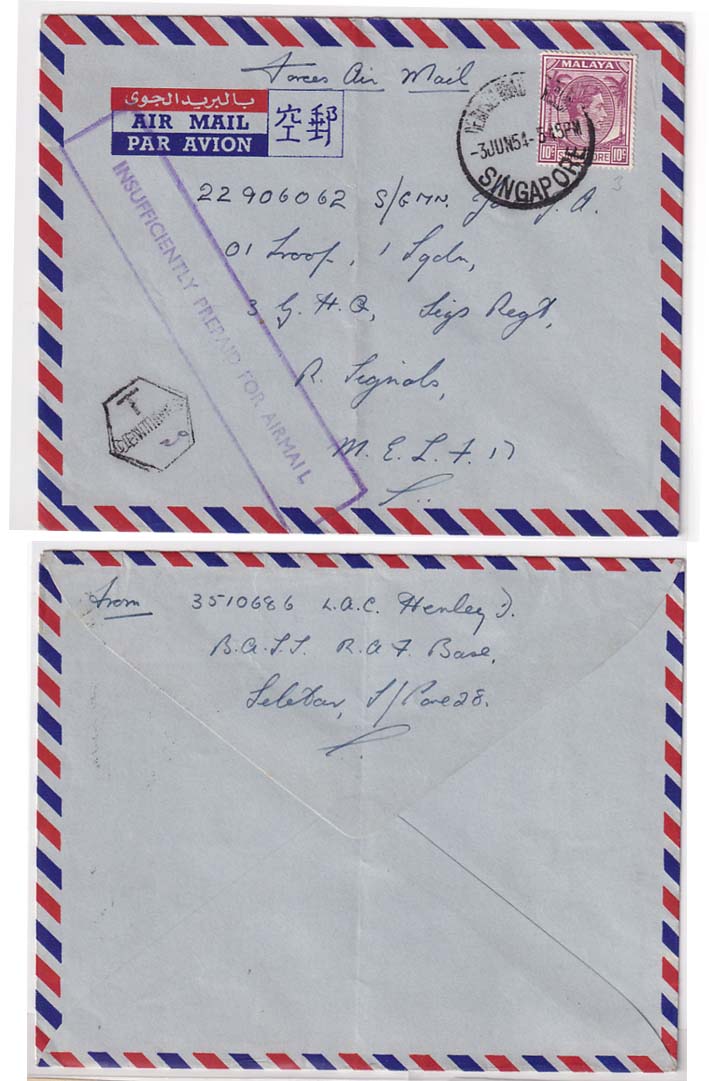 Forces Air Mail
بالبريد الجوى
AIR MAIL
PAR AVION
空郵
MALAYA
10c SINGAPORE 10c
-3JUN54-545PM
SINGAPORE
3
INSUFFICIENTLY PREPAID FOR AIRMAIL
22906062 S/GMN. J.A.
01 Troop, 1 Sqdn,
3 G.H.Q, Sigs Regt,
R. Signals,
M.E.L.F. 17
T
CENTIMES
From 3510686 L.A.C. Henley J.
B.A.S.S. R.A.F. Base,
Seletar, S/Pore 28.